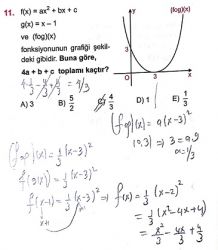 11. f(x) = ax² + bx + c
g(x) = x − 1
ve (fog)(x)
fonksiyonunun grafiği şekil-
deki gibidir. Buna göre,
4a + b + c toplamı kaçtır?
A) 3 B) 5/2 C) 4/3 D) 1 E) 1/3
y (fog)(x)
3
3 x
4·1/3 − 4/3 + 4/3 = 4/3
(fog)(x) = a(x−3)²
(0,3) ⇒ 3 = a·9
a = 1/3
(fog)(x) = 1/3 (x−3)²
f(g(x)) = 1/3 (x−3)²
f(x−1) = 1/3 (x−3)² ⇒ f(x) = 1/3 (x−2)²
x+1 x+1
= 1/3 (x²−4x+4)
= x²/3 − 4x/3 + 4/3